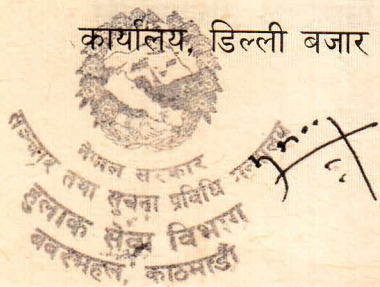 कार्यालय, डिल्ली बजार
नेपाल सरकार
सञ्चार तथा सुचना प्रविधि मन्त्रालय
हुलाक सेवा विभाग
बबरमहल, काठमाडौं